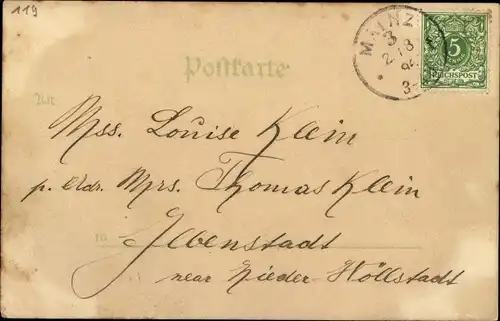 119
MAINZ
3
2 / 8
5
REICHSPOST
3-
Postkarte
Mss. Louise Klein
p. Adr. Mrs. Thomas Klein
in Ilbenstadt
near Nieder-Höllstadt